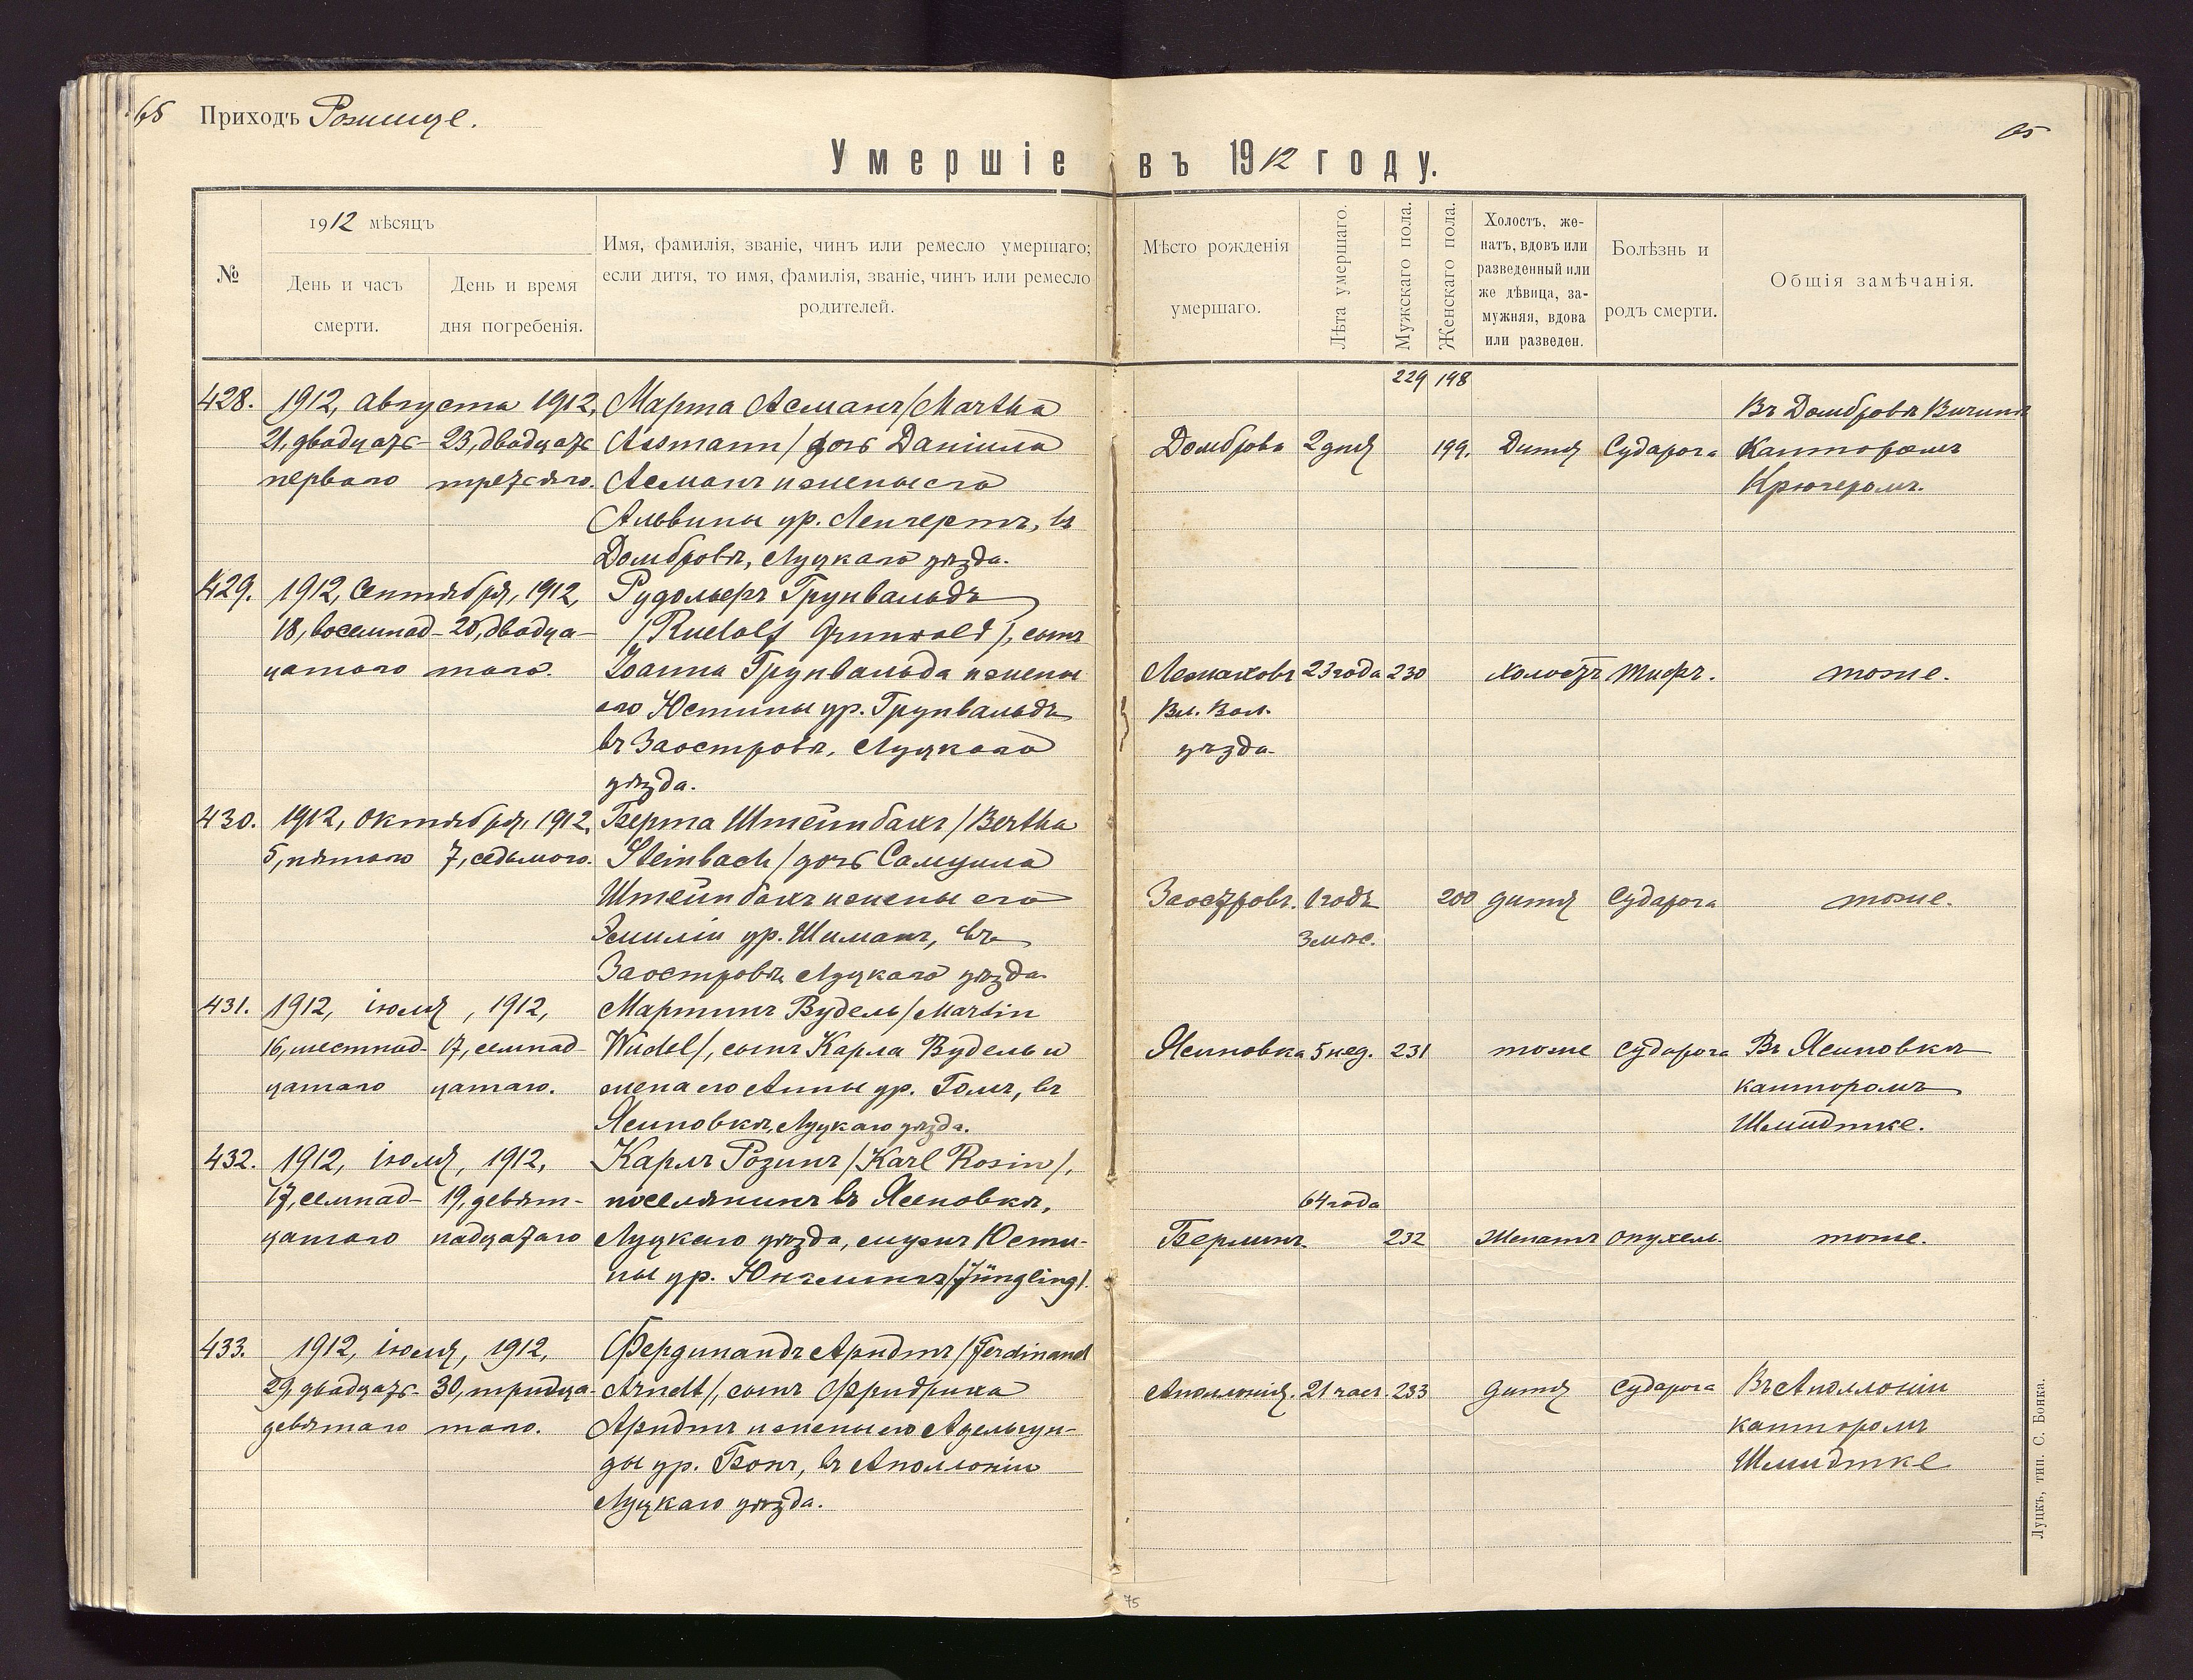 65 Приходъ Рожище.
65
Умершіе въ 1912 году.
№
1912 мѣсяцъ
День и часъ
смерти.
День и время
дня погребенія.
Имя, фамилія, званіе, чинъ или ремесло умершаго;
если дитя, то имя, фамилія, званіе, чинъ или ремесло
родителей.
Мѣсто рожденія
умершаго.
Лѣта умершаго.
Мужскаго пола.
Женскаго пола.
Холостъ, же-
натъ, вдовъ или
разведенный или
же дѣвица, за-
мужняя, вдова
или разведен.
Болѣзнь и
родъ смерти.
Общія замѣчанія.
229 198
428. 1912, августа 1912, Марта Асманъ /Martha
Въ Домбровѣ
21, двадцать 23, двадцать Assmann/ дочь Даніила
Домброва 2 дня 199. Дитя Судорога Канторомъ
перваго третьяго. Асманъ и жены его
Крюгеромъ.
Альвины ур. Ленгертъ, въ
Домбровѣ, Луцкаго уѣзда.
429. 1912, Сентября, 1912, Рудольфъ Грунвальдъ
18, восемнад- 20, двадца- /Rudolf Grunwald/, сынъ
цатаго таго. Іоанна Грунвальда и жены
23 года 230 холостъ Тифъ. тоже.
его Юстины ур. Грунвальдъ
Вл. Вол.
въ Заостровѣ, Луцкаго
уѣзда
уѣзда.
430. 1912, Октября, 1912, Берта Штейнбахъ /Bertha
5, пятаго 7, седьмого. Steinbach/ дочь Самуила
Штейнбахъ и жены его
Заостровъ. 1 годъ 200 дитя Судорога тоже.
Эмиліи ур. Шиманъ, въ
3 мѣс.
Заостровѣ Луцкаго уѣзда
431. 1912, іюля, 1912, Мартинъ Вудель /Martin
16, шестнад- 17, семнад- Wudel/, сынъ Карла Вудель и
Ясиновка 5 нед. 231 тоже Судорога Въ Ясиновкѣ
цатаго цатаго. жена его Анны ур. Гомъ, въ
канторомъ
Ясиновкѣ, Луцкаго уѣзда.
Шмидтке.
432. 1912, іюля, 1912, Карлъ Розинъ /Karl Rosin/,
17, семнад- 19, девят- поселянинъ въ Ясеновкѣ,
64 года
цатаго надцатаго Луцкаго уѣзда, мужъ Юсти-
Берлинъ 232 Женатъ Опухоль тоже.
ны ур. Юнглингъ /Jüngling/.
433. 1912, іюля, 1912, Фердинандъ Арндтъ /Ferdinand
29, двадцать 30, тридца- Arndt/, сынъ Фридриха
Аполлонія. 21 час. 233 дитя Судорога Въ Аполлоніи
девятаго таго. Арндтъ и жены его Адельгун-
канторомъ
ды ур. Бонъ, въ Аполлоніи
Шмидтке
Луцкаго уѣзда.
Луцкъ, тип. С. Бонка.
75